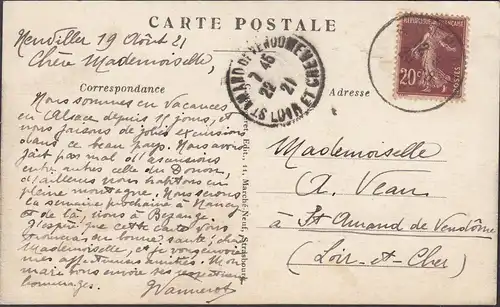 CARTE POSTALE
Neuviller 19 Août 21
Chère Mademoiselle,
Correspondance
Adresse
Nous sommes en vacances
en Alsace depuis 15 jours, et
nous faisons de jolies excursions
dans ce beau pays. Nous avons
fait pas mal d'ascensions
entre autres celle du Donon,
d'ailleurs nous habitons en
pleine montagne. Nous serons
la semaine prochaine à Nancy
et de là, nous à Bezange
J'espère que cette carte vous
trouvera en bonne santé, chère
Mademoiselle, et je vous envoie
mes affectueuses amitiés. Mon
mari bons envoie ses respectueux
hommages.
Mademoiselle
A. Veau
à St Amand de Vendôme
(Loir-et-Cher)
ST AMAND DE VENDOME
LOIR ET CHER
7 45
22
21
REPUBLIQUE FRANÇAISE
20
POSTES
Edit., 11, Marché-Neuf, Strasbourg